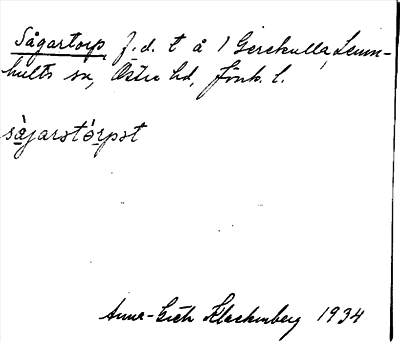 Sågartorp f.d. t å 1 Gerekulla, Lemn-
hults sn, Östra hd, Jönk. l.
såjarstórpst
Anna-Greth Klackenberg 1934